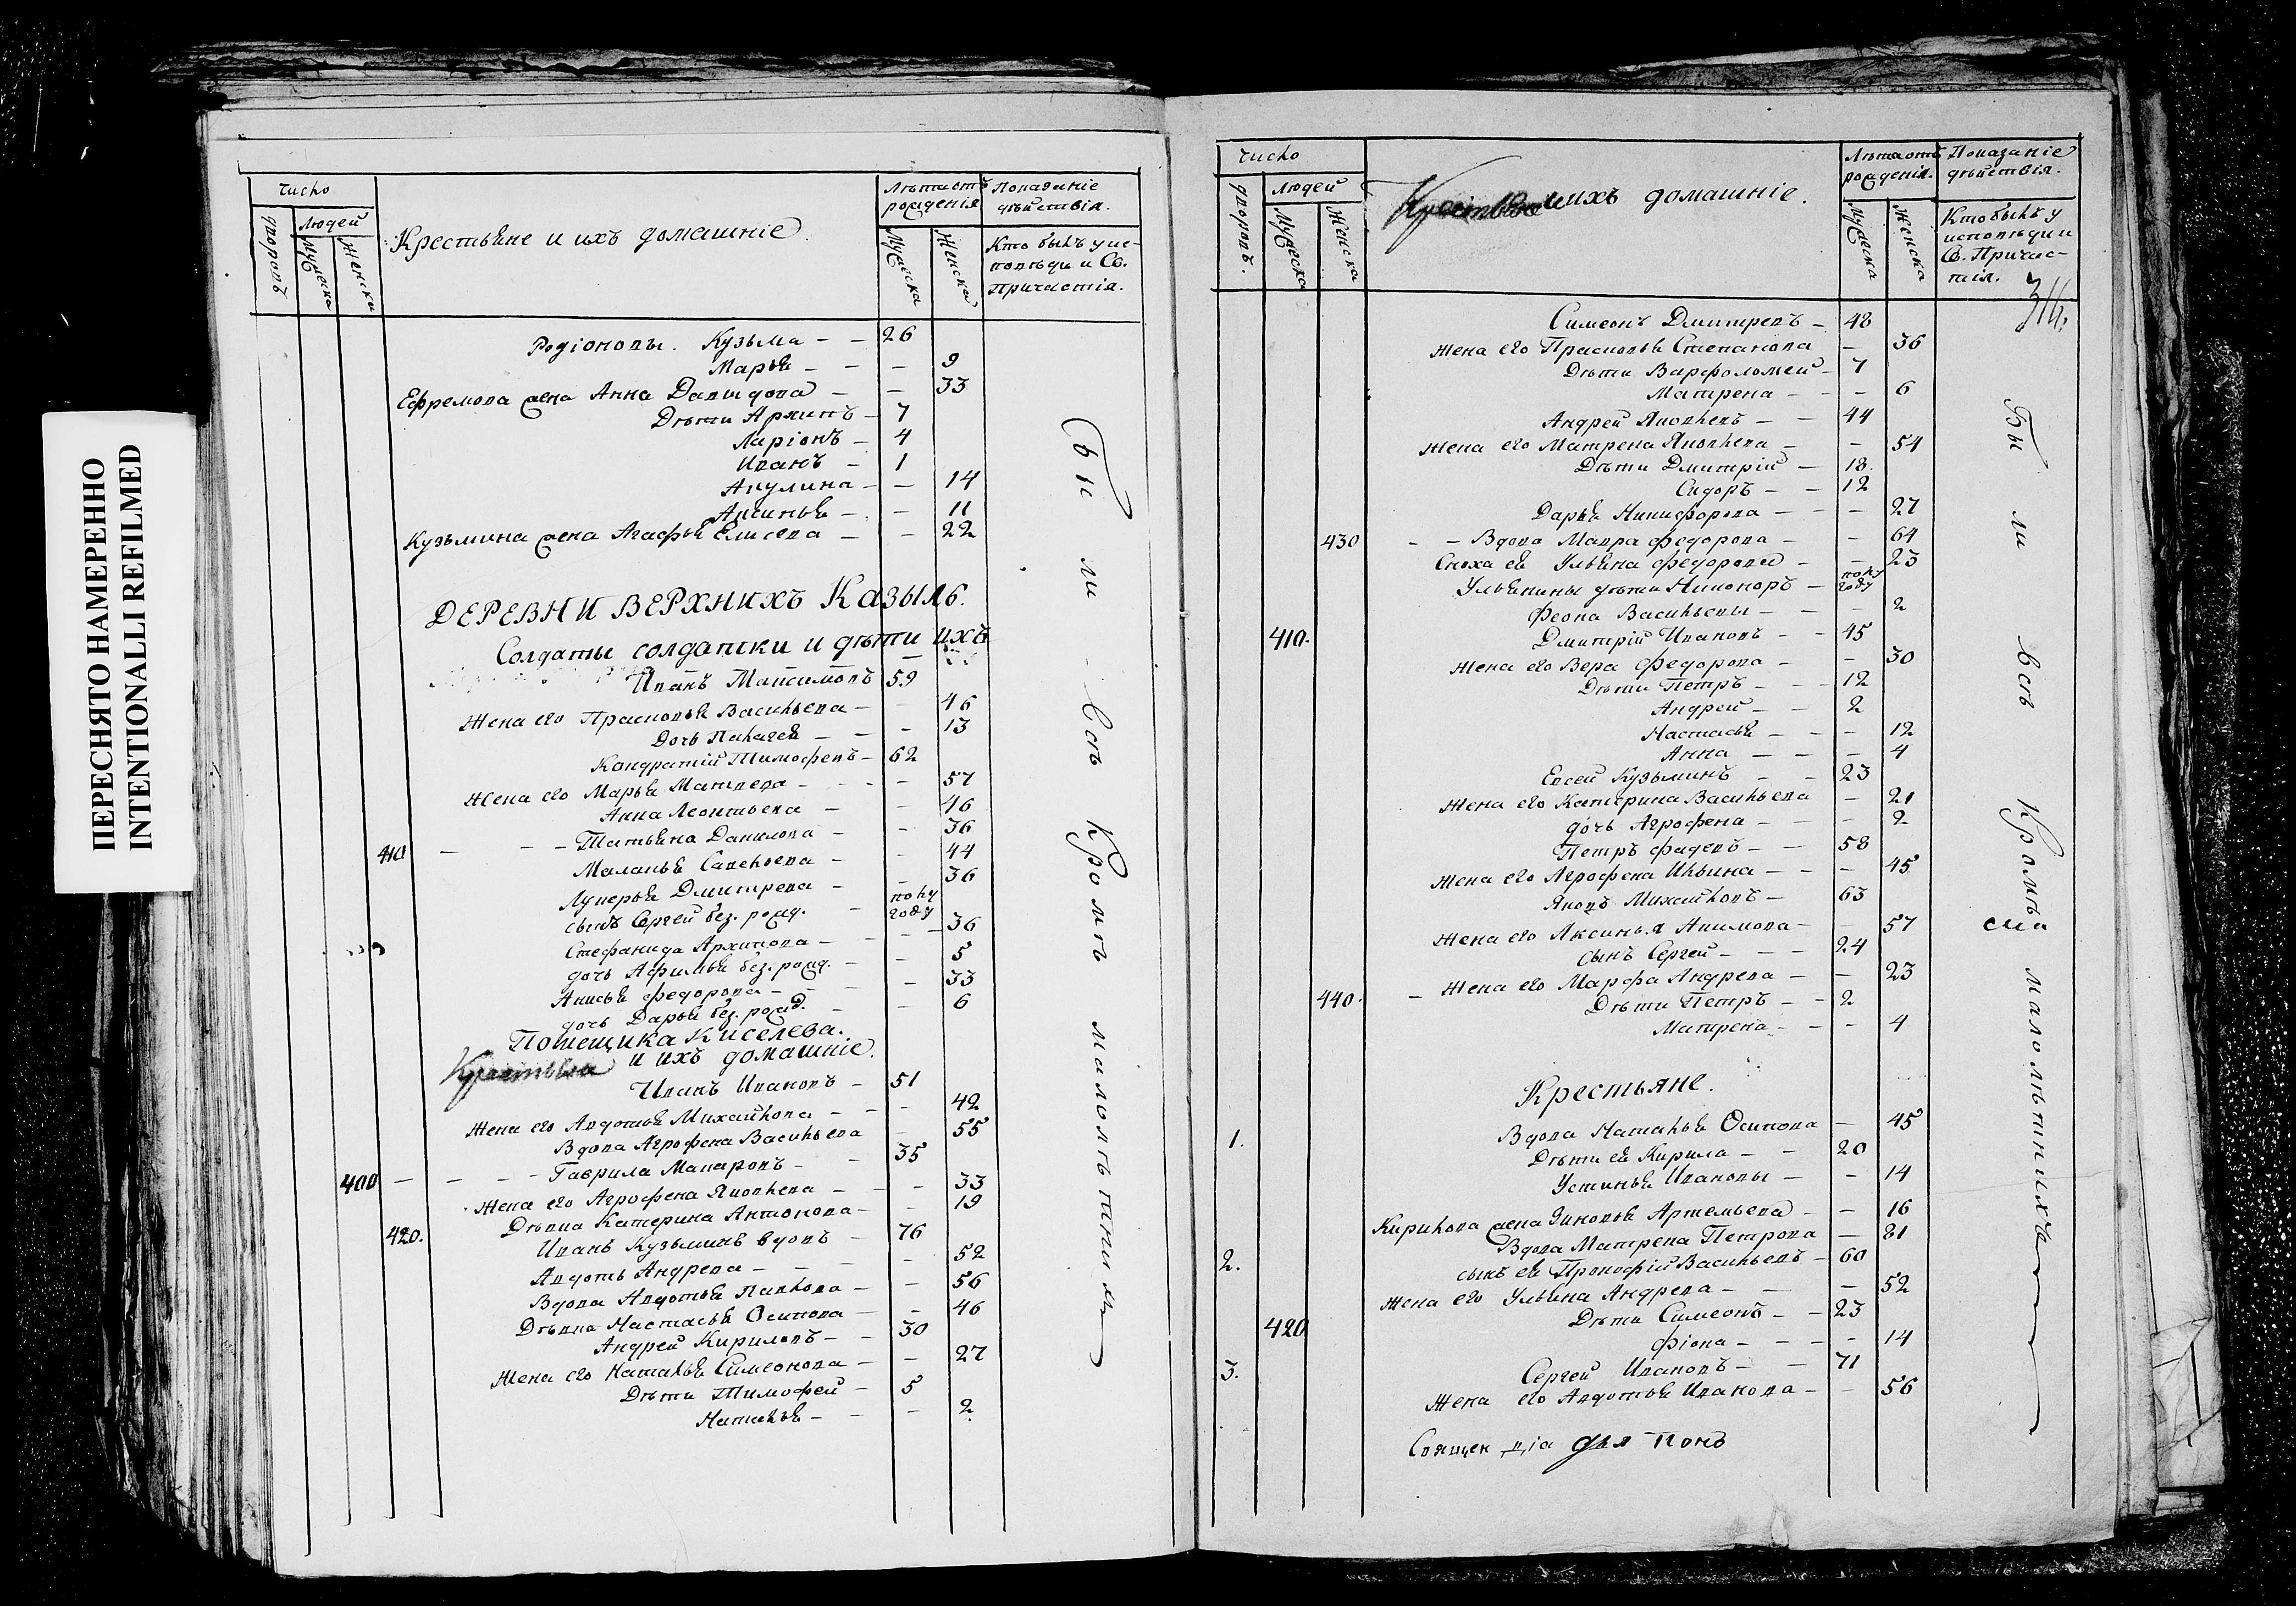 ПЕРЕСНЯТО НАМЕРЕННО
INTENTIONALLI REFILMED
Число
Людей
Мужеска
Женска
Крестьяне и ихъ домашніе.
Лѣта отъ рожденія
Мужеска
Женска
Показаніе дѣйствія.
Кто былъ у исповѣди и Св. Причастія.
Родіоновы. Кузьма - - 26
Марья - - - 9
Ефремова жена Анна Давыдова - - 33
Дѣти Архипъ - 7
Ларіонъ - 4
Иванъ - 1
Акулина - - 14
Аксинья - - 11
Кузьмина жена Агафья Елисева - - 22
ДЕРЕВНИ ВЕРХНИХЪ КАЗЫЛЬ.
Солдаты солдатски и дѣти ихъ
Иванъ Максимовъ 59
Жена его Прасковья Васильева - - 46
Дочь Палагея - - - 13
Кондратій Тимофевъ - 62
Жена его Марья Матвева - - - 57
Анна Леонтьева - - 46
- - - Татьяна Данилова - - 36
410
Маланья Савельева - - 44
Лукерья Дмитрева - - 36
сынъ Сергей без. рожд. - полу году
Стефанида Архипова - - 36
дочь Афимья без. рожд. - - 5
Анисья Федорова - - - 33
дочь Дарья без. рожд. - - 6
Помещика Киселева.
Крестьяна и ихъ домашніе.
Иванъ Ивановъ - 51
Жена его Авдотья Михайлова - - - 42
Вдова Агрофена Васильева - 55
400 - - - - Гаврила Макаровъ - - 35
Жена его Агрофена Яковлева - - - 33
Дѣвка Катерина Антонова - - 19
420.
Иванъ Кузьминъ вдовъ - 76
Авдоть Андрева - - - - 52
Вдова Авдотья Павлова - - 56
Дѣвка Настасья Осипова - - 46
Андрей Кириловъ - - 30
Жена его Наталья Симеонова - - 27
Дѣти Тимофей - 5
Наталья - - - 2
Были Всѣ Кромѣ малолѣтнихъ
Число
дворовъ.
Людей
Мужеска
Женска
Крестьяне и ихъ домашніе.
Лѣта отъ рожденія.
Мужеска
Женска
Показаніе дѣйствія.
Кто былъ у исповѣди и Св. Причастія.
Симеонъ Дмитревъ - 48
Жена его Прасковья Степанова - 36
Дѣти Варфоломей - 7
Матрена - - - 6
Андрей Яковлевъ - - 44
Жена его Матрена Яковлева - - 54
Дѣти Дмитрій - 18.
Сидоръ - - 12
Дарья Никифорова - - - 27
430 - - Вдова Мавра Федорова - - 64
Сноха ея Ульяна Федорова - - 23
Ульянины дѣти Никоноръ - полу году
Феона Васильевы - - - 2
410.
Дмитрій Ивановъ - - 45
Жена его Вера Федорова - - 30
Дѣти Петръ - - - 12
Андрей - - 2
Настасья - - - 12
Анна - - - 4
Евсей Кузьминъ - - 23
Жена его Катерина Васильева - 21
дочь Агрофена - - - 2
Петръ Фадевъ - - 58
Жена его Агрофена Ильина - - - 45
Яковъ Михайловъ - 63
Жена его Аксинья Акимова - - 57
сынъ Сергей - - - 24
440. - Жена его Марфа Андрева - - 23
Дѣти Петръ - - 2
Матрена - - - 4
Были Всѣ Кромѣ малолѣтнихъ
Крестьяне.
1.
Вдова Наталья Осипова - 45
Дѣти ея Кирила - - 20
Устинья Ивановы - - 14
Кирилова жена Зиновья Артемьева - - 16
2.
Вдова Матрена Петрова - 81
сынъ ея Прокофій Васильевъ - 60
Жена его Ульяна Андрева - - - 52
420
Дѣти Симеонъ - - 23
Фіона - - - - 14
3.
Сергей Ивановъ - - 71
Жена его Авдотья Иванова - - 56